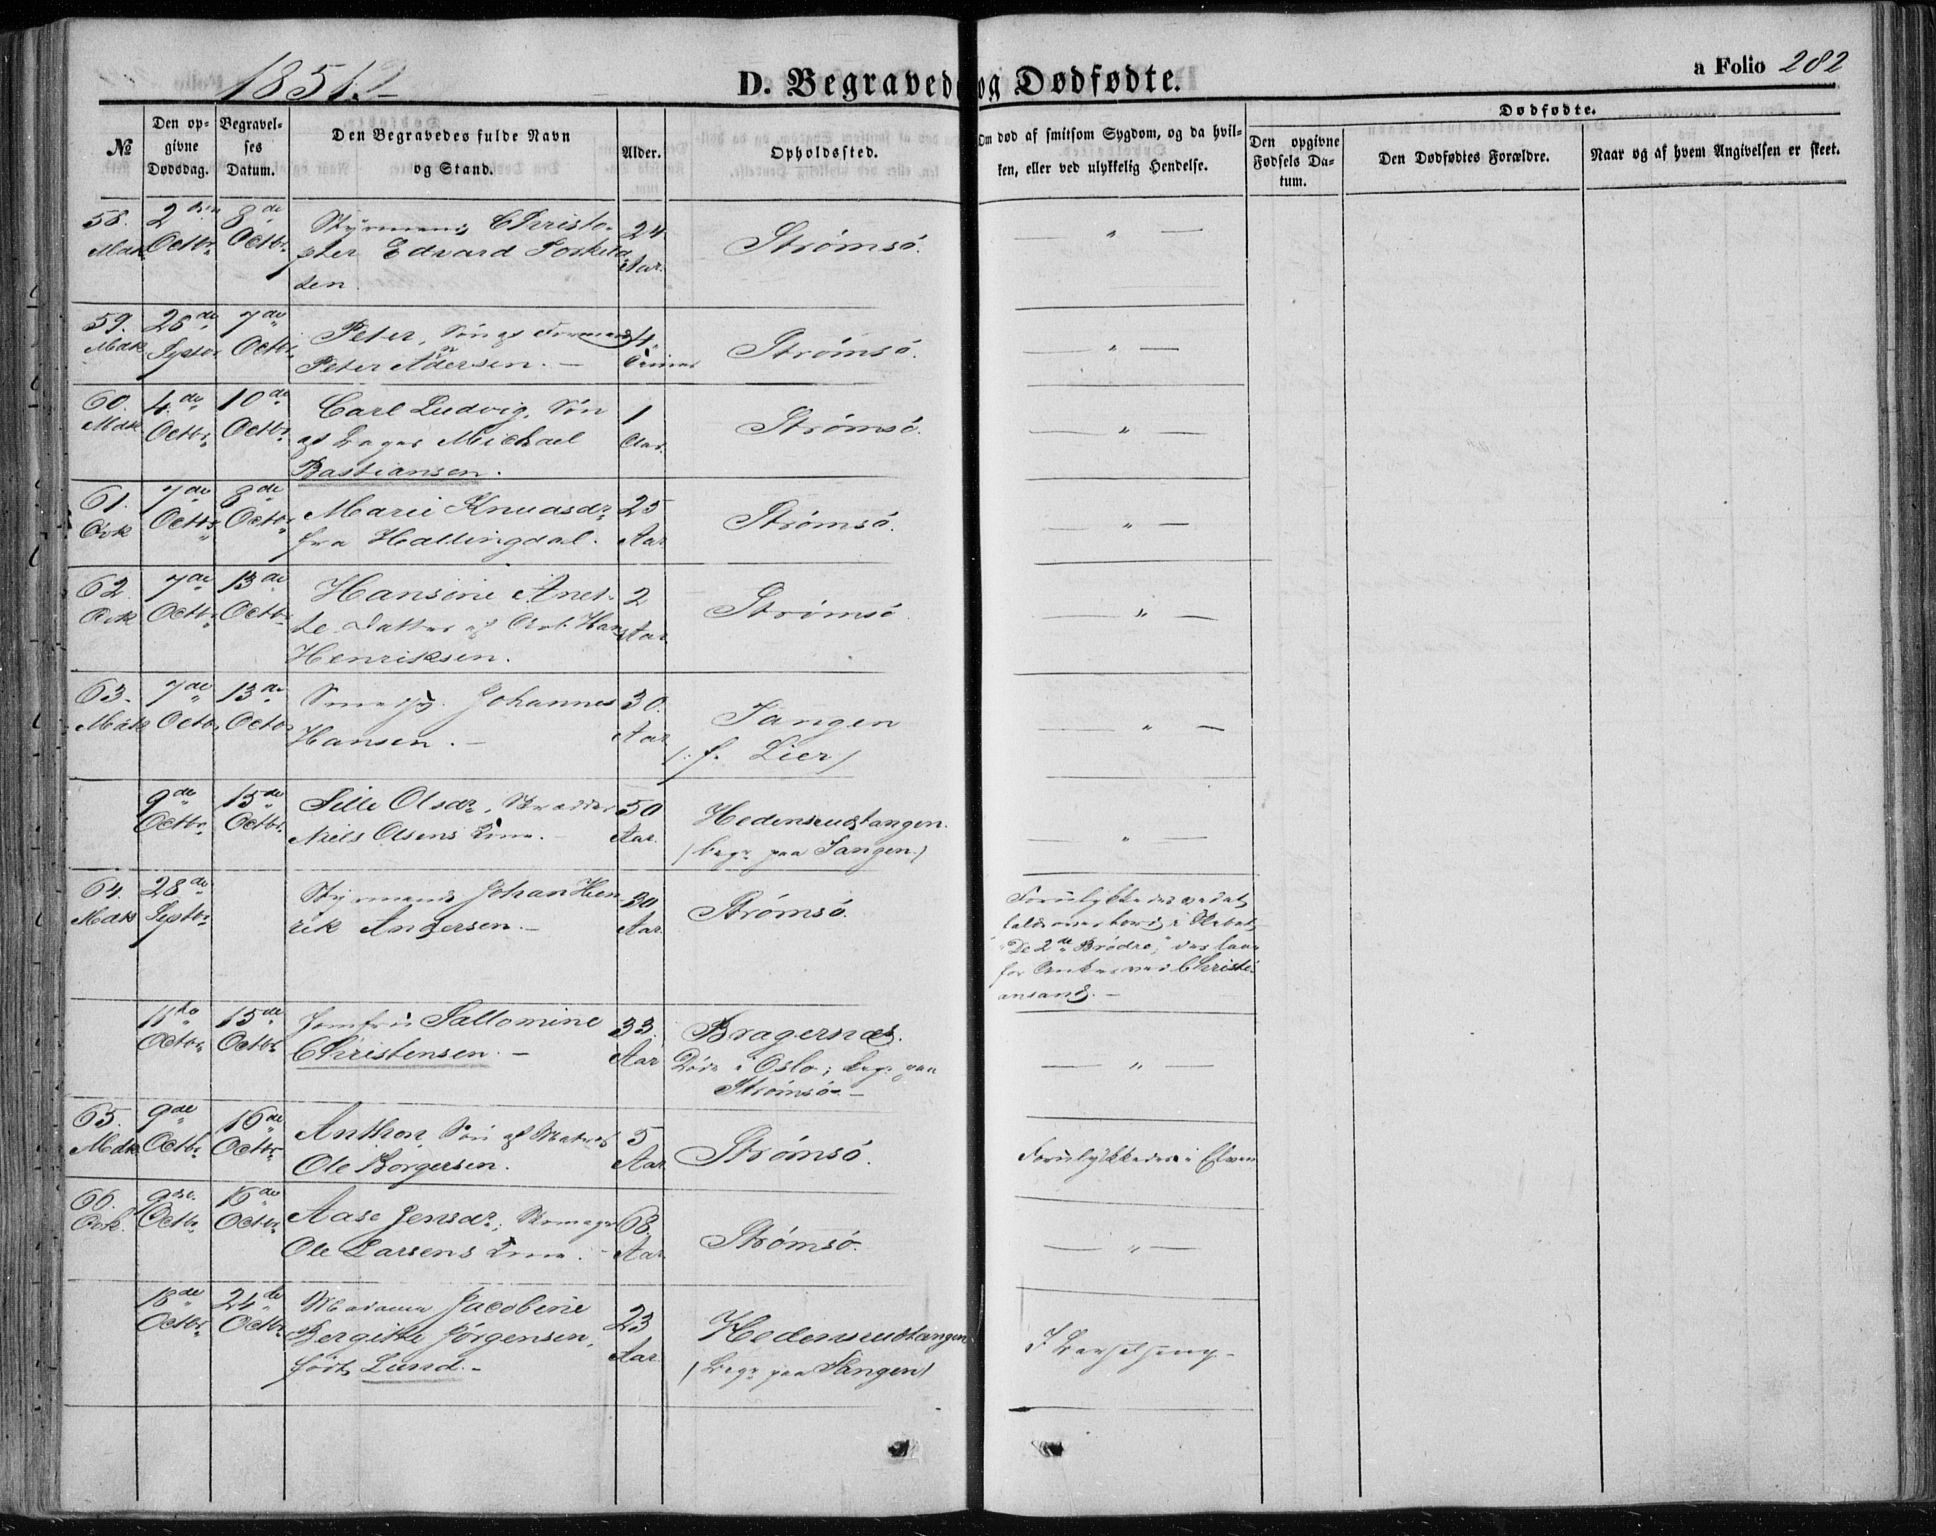 1851.
D. Begravede og Dødfødte.
a Folio 282
№
Den opgivne Dødsdag.
Begravelses Datum.
Den Begravedes fulde Navn og Stand.
Alder.
Opholdssted.
Om død af smitsom Sygdom, og da hvilken, eller ved ulykkelig Hendelse.
Dødfødte.
Den opgivne Fødsels Datum.
Den Dødfødtes Forældre.
Naar og af hvem Angivelsen er skeet.
58. 2den 8de Styrmand Christo- 24
Mdk Octbr Octbr pher Edvard Torkild- Aar Strømsø. — " —
sen
59. 26de 7de Peter, Søn af Formand 4
Mdk Septbr Octbr Peter Andersen. — Timer Strømsø. — " —
60. 4de 10de Carl Ludvig, Søn 1
Mdk Octbr Octbr af Bager Michael Aar. Strømsø. — " —
Bastiansen.
61. 7de 8de Marie Knudsdr 25
Qvk Octbr Octbr fra Hallingdal. Aar Strømsø. — " —
62. 7de 13de Hansine Anet- 2
Qvk Octbr Octbr te Datter af Arb. Hans Aar Strømsø. — " —
Henriksen.
63. 7de 13de Johannes 30.
Mdk Octbr Octbr Hansen. — Aar Tangen — " —
/: f. Lier /
9de 15de Olsdr, Skrædder 50 Hedensrudtangen.
Octbr Octbr Niels Olsens Kone. — Aar. / begr. paa Tangen./ — " —
64. 28de Styrmand Johan Hen 30
Mdk Septbr rik Andersen. — Aar. Strømsø.
Forulykkedes ved at
"De 2de Brødre," der laae
for Anker ved Christi-
ansand. —
11te 15de Jomfru Sallomine 33. Bragernæs.
Octbr Octbr Christensen. — Aar Død i Oslo; begr. paa — " —
Strømsø —
65. 9de 16de Anthon, Søn af Matros 5
Mdk Octbr Octbr Ole Borgersen. Aar Strømsø. Forulykkedes i Elven
66. 9de 16de Aase Jensdr, Skomager 68
Qvk. Octbr Octbr Ole Larsens Kone. — Aar Strømsø. — " —
18de 24de Madame Jacobine 23
Octbr Octbr Bergitte Jørgensen, Aar. Hedensrudtangen I Barselseng —
født Lund. — / begr. paa Tangen/